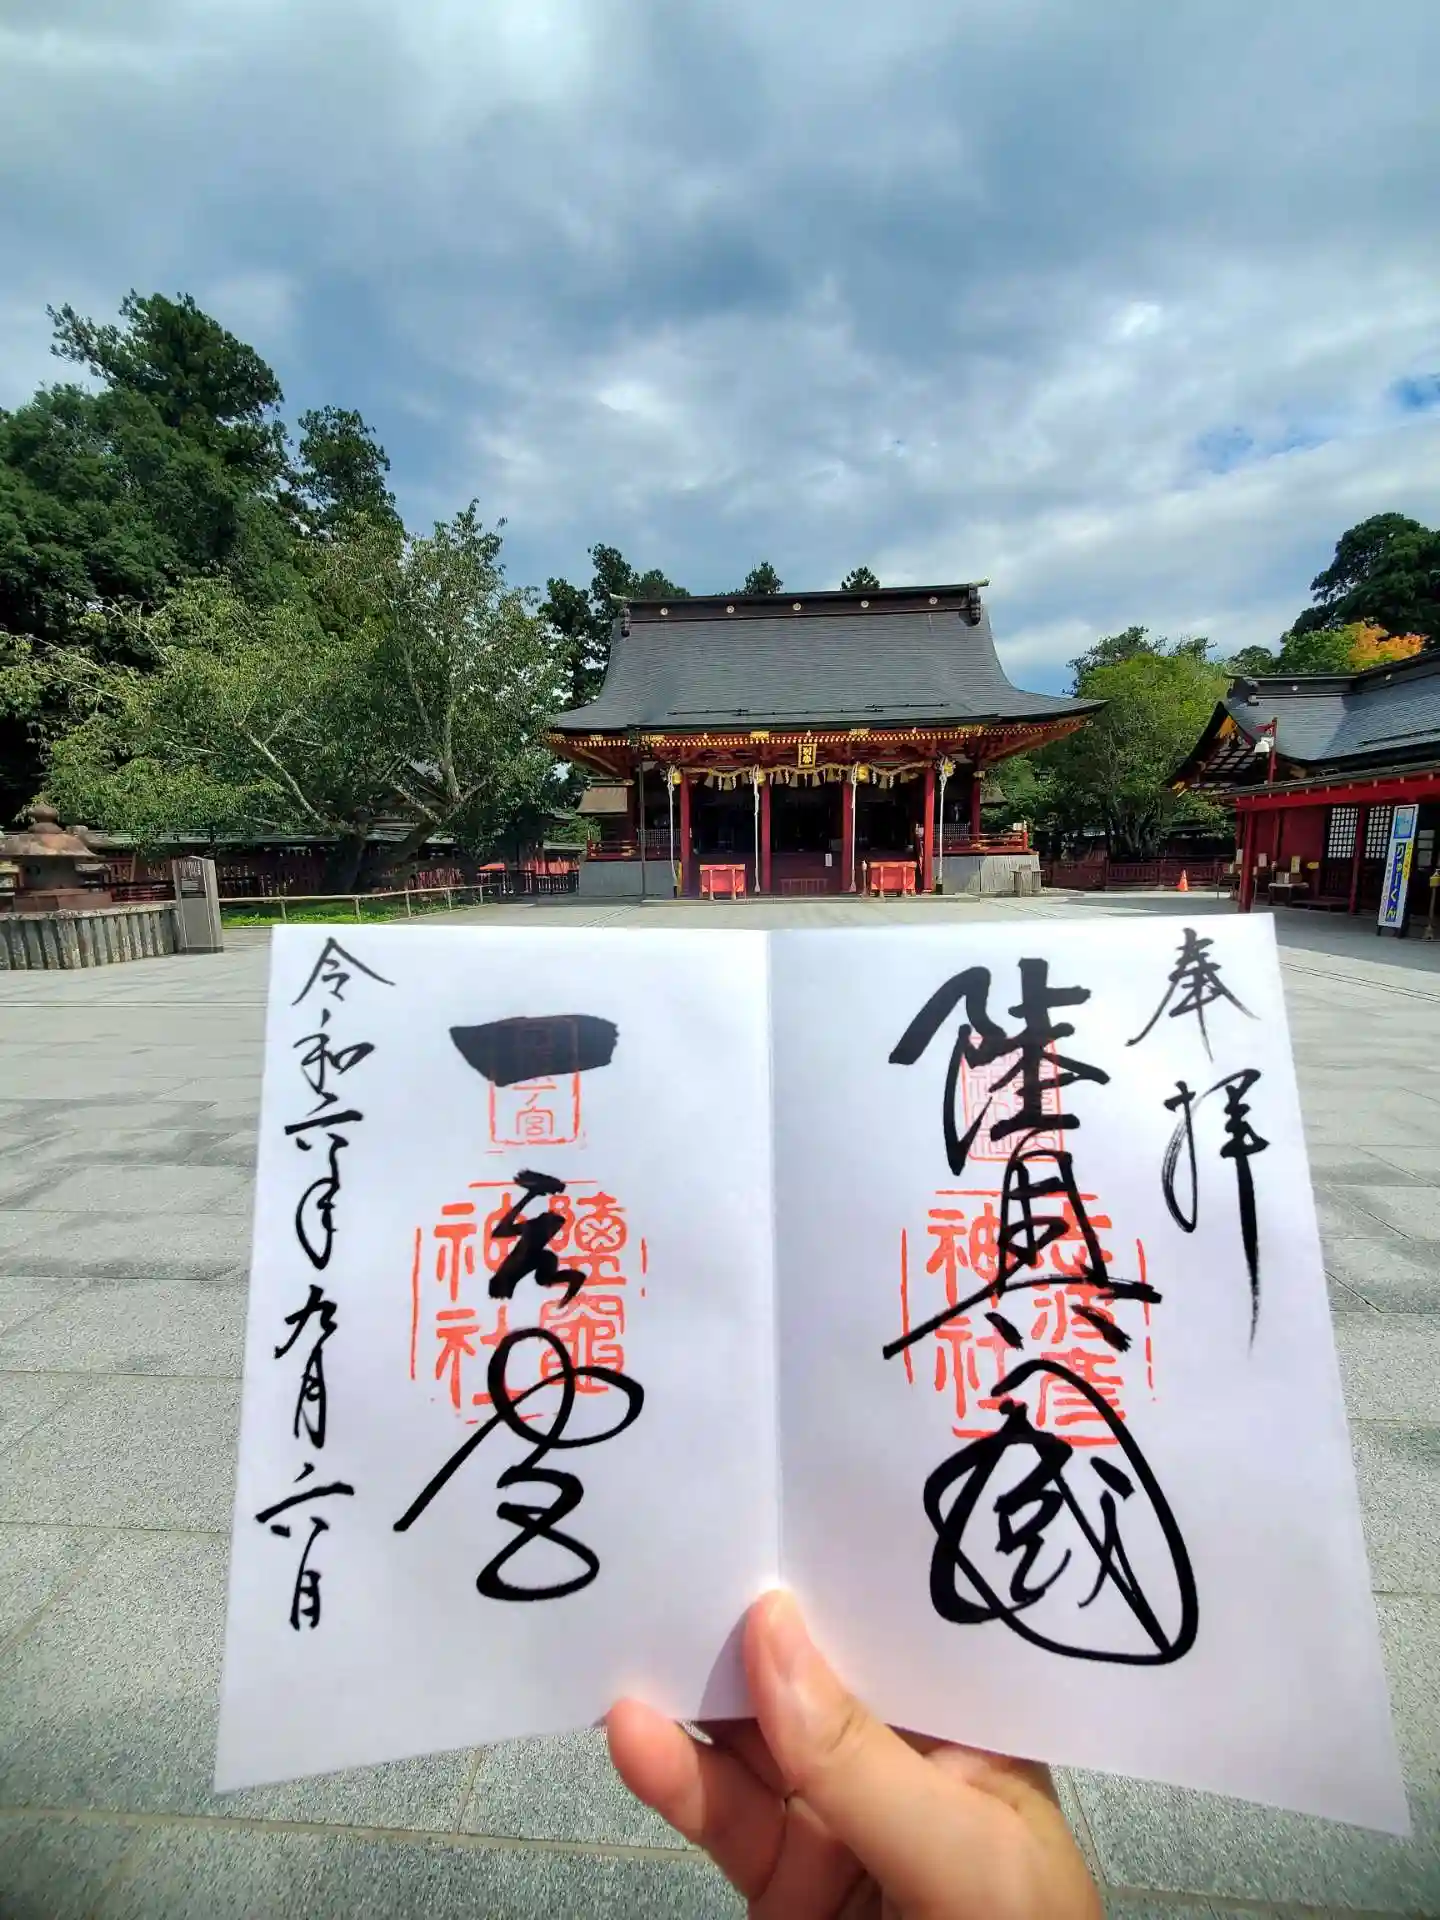 別宮
奉拝
陸奥國
志波彦
神社
一之宮
鹽竈
神社
令和六年九月六日